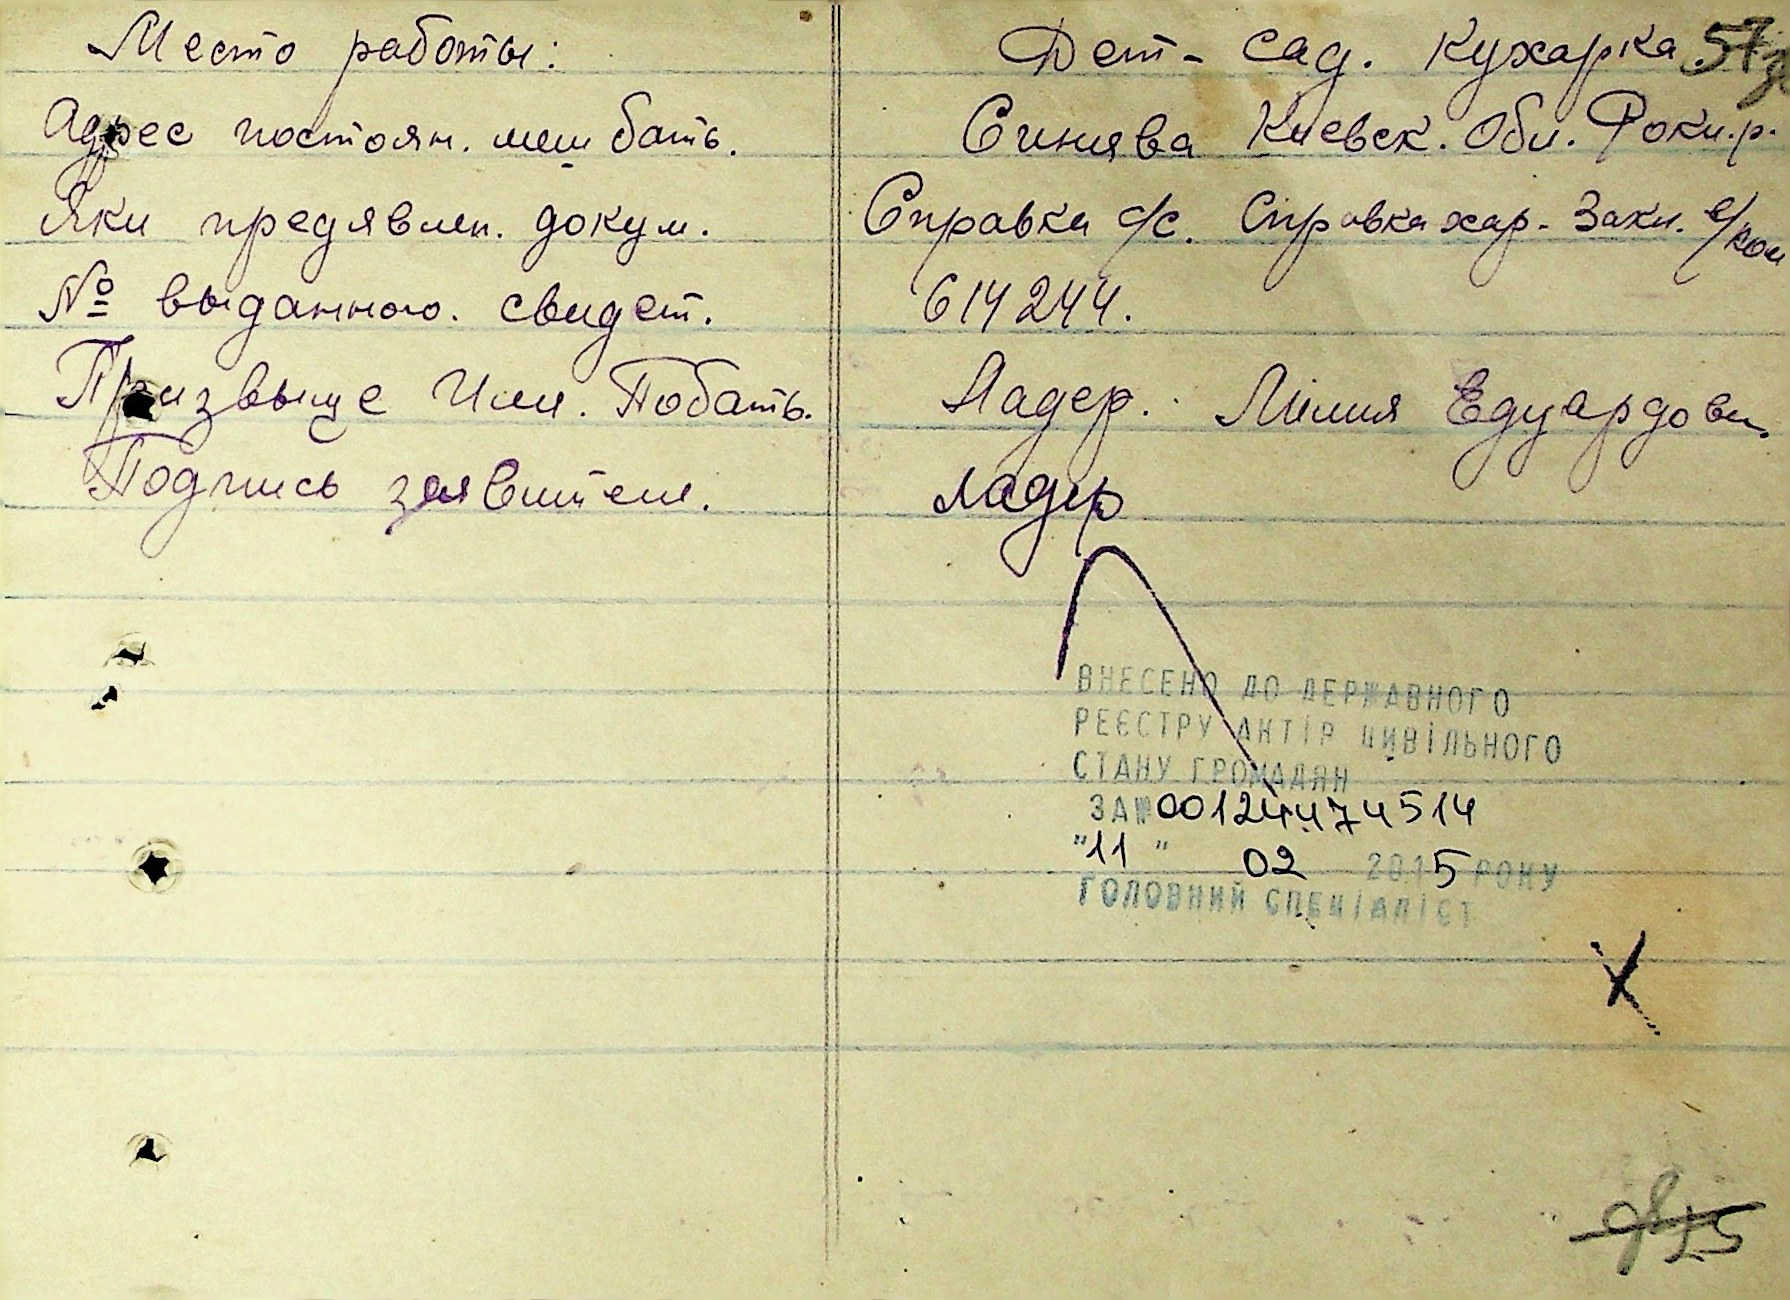 Место работы: Дет-сад. Кухарка. 57
Адрес постоян. меш бать. Синява Киевск. Обл. Роки.р.
Яки предявлен. докум. Справка с/с. Справка хар. Закл.
№ выданного. свидет. 614244.
Призвыще Имя. Побать. Ладер. Лилия Едуардовн.
Подпись заявителя. Ладер
ВНЕСЕНО ДО ДЕРЖАВНОГО
РЕЄСТРУ АКТІВ ЦИВІЛЬНОГО
СТАНУ ГРОМАДЯН
ЗА№ 00124474514
"11" 02 2015 РОКУ
ГОЛОВНИЙ СПЕЦІАЛІСТ